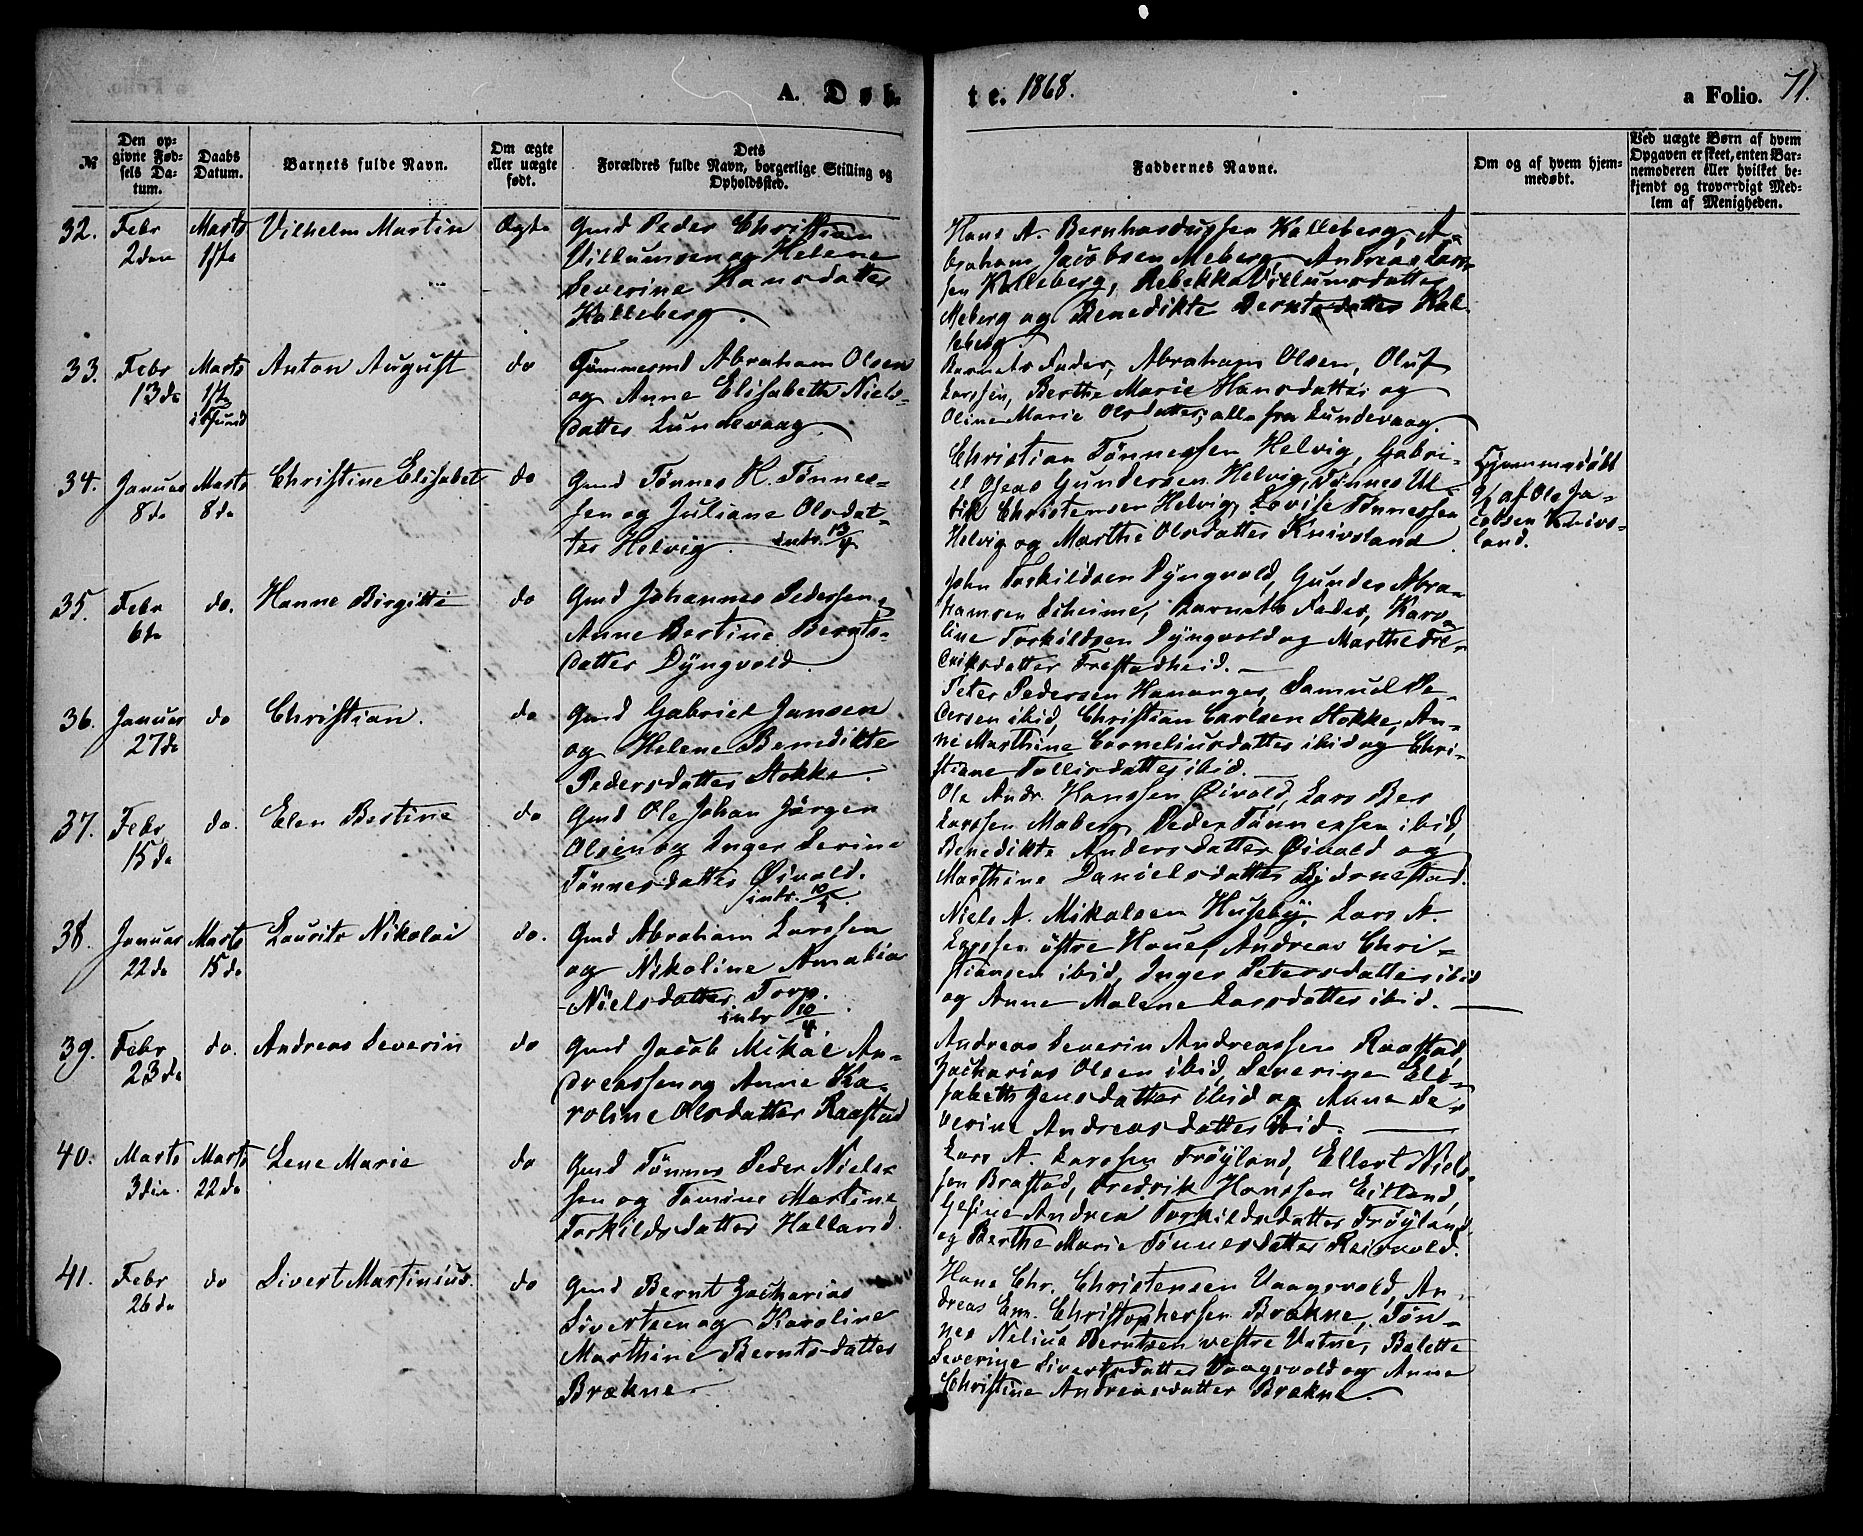 A. Døb-
te. 1868.
a Folio. 71.
№
Den op-
givne Fød-
sels Da-
tum.
Daabs
Datum.
Barnets fulde Navn.
Om ægte
eller uægte
født.
Dets
Forældres fulde Navn, borgerlige Stilling og
Opholdssted.
Faddernes Navne.
Om og af hvem hjem-
medøbt.
Ved uægte Børn af hvem
Opgaven er skeet, enten Bar-
nemoderen eller hvilket be-
kjendt og troværdigt Med-
lem af Menigheden.
32.
Febr
2den
Marts
1ste
Vilhelm Martin
Ægte
Gmd Peder Christian
Villumsen og Helene
Severine Hansdatter
Kalleberg.
Hans A. Bernhardussen Kalleberg, A-
braham Jacobsen Meberg, Andreas Lars-
sen Kalleberg, Rebekka Villumsdatter
Meberg og Benedikte Berntsdatter Kal-
leberg.
33.
Febr
13de
Marts
1ste
Anton August
do
Tømmermd Abraham Olsen
og Anne Elisabeth Niels-
datter Lundevaag.
Barnets Fader, Abraham Olsen, Oluf
Larssen, Berthe Marie Hansdatter og
Oline Marie Olsdatter, alle fra Lundevaag.
34.
Januar
8de
Marts
8de
Christine Elisabet
do
Gmd Tønnes H. Tønnes-
sen og Juliane Olsdat-
ter Helvig. intr. 13/4
Christian Tønnessen Helvig, Gabri-
el Gundersen Helvig, Tønnes Ul-
rik Christensen Helvig, Lovise Tønnessen
Helvig og Marthe Olsdatter Knivsland.
Hjemmedøbt
af Ole Ja-
cobsen Knivs-
land.
35.
Febr
6te
do.
Hanne Birgitte
do
Gmd Johannes Pedersen og
Anne Bertine Bernts-
datter Dyngvold.
John Torkildsen Dyngvold, Gunder Abra-
hamsen Scheime, Barnets Fader, Karo-
line Torkildsen Dyngvold og Marthe Fre-
driksdatter Frestadheid.
36.
Januar
27de
do
Christian.
do
Gmd Gabriel Jansen
og Helene Benedikte
Pedersdatter Stokke.
Peter Pedersen Hananger, Samuel Pe-
dersen ibid, Christian Carlsen Stokke, An-
ne Marthine Corneliusdatter ibid og Chri-
stiane Tollisdatter ibid.
37.
Febr
15de
do.
Elen Bertine
do
Gmd Ole Johan Jørgen
Olsen og Inger Serine
Tønnesdatter Øivold.
intr. 10/5.
Ole Andr. Hanssen Øivold, Lars Ber
Larssen Maberg, Peder Tønnessen ibid,
Benedikte Andersdatter Øivold og
Marthine Danielsdatter Bjørnestad.
38.
Januar
22de
Marts
15de
Laurits Nikolai
do.
Gmd Abraham Larssen
og Nikoline Amalia
Nielsdatter Torp.
intr 10/4.
Niels A. Mikalsen Huseby, Lars A.
Larssen østre Haue, Andreas Chri-
stiansen ibid, Inger Petersdatter ibid
og Anne Malene Larsdatter ibid.
39.
Febr
23de
do.
Andreas Severin
do
Gmd Jacob Mikal An-
dreassen og Anne Ka-
roline Olsdatter Raastad
Andreas Severin Andreassen Raastad,
Zacharias Olsen ibid, Severine Eli-
sabeth Jensdatter ibid og Anne Se-
verine Andreasdatter ibid.
40.
Marts
3die
Marts
22de
Lene Marie
do
Gmd Tønnes Peder Niels-
sen og Tomine Martine
Torkildsdatter Halland.
Lars A. Larssen Trøyland, Ellert Niels-
sen Brastad, Fredrik Hanssen Eitland,
Gesine Andrea Torkildsdatter Trøyland
og Berthe Marie Tønnesdatter Reisvold.
41.
Febr
26de
do
Sivert Martinius.
do
Gmd Bernt Zacharias
Sivertsen og Karoline
Marthine Berntsdatter
Brækne.
Hans Chr. Christensen Vaagsvold, An-
dreas Em. Christophersen Brækne, Tøn-
nes Nelius Berntsen vestre Vatne, Balette
Severine Sivertsdatter Vaagsvold og Anne
Christine Andreasdatter Brækne.